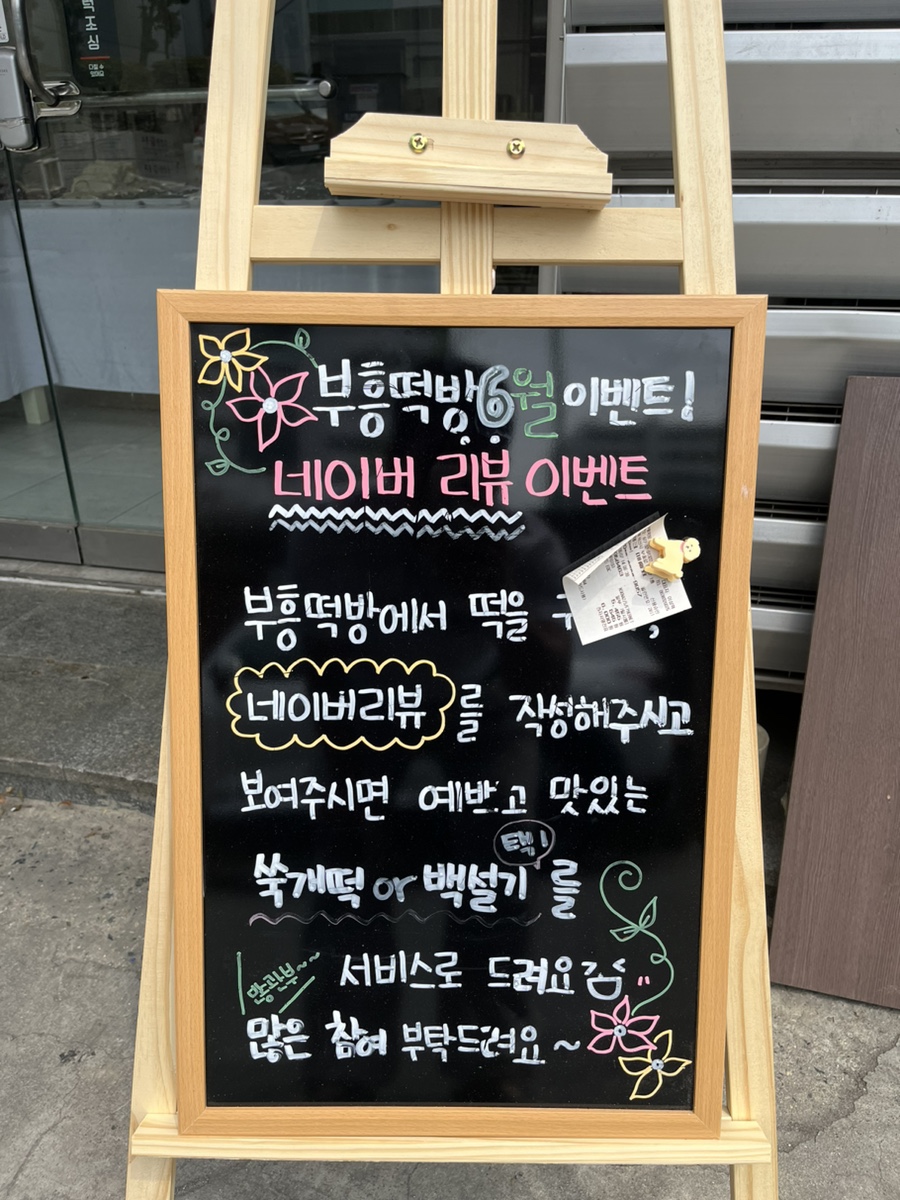 부흥떡방 6월 이벤트!
네이버 리뷰 이벤트
부흥떡방에서 떡을
네이버리뷰를 작성해주시고
보여주시면 예쁘고 맛있는
택1
쑥개떡 or 백설기를
서비스로 드려요
많관부~~
많은 참여 부탁드려요~